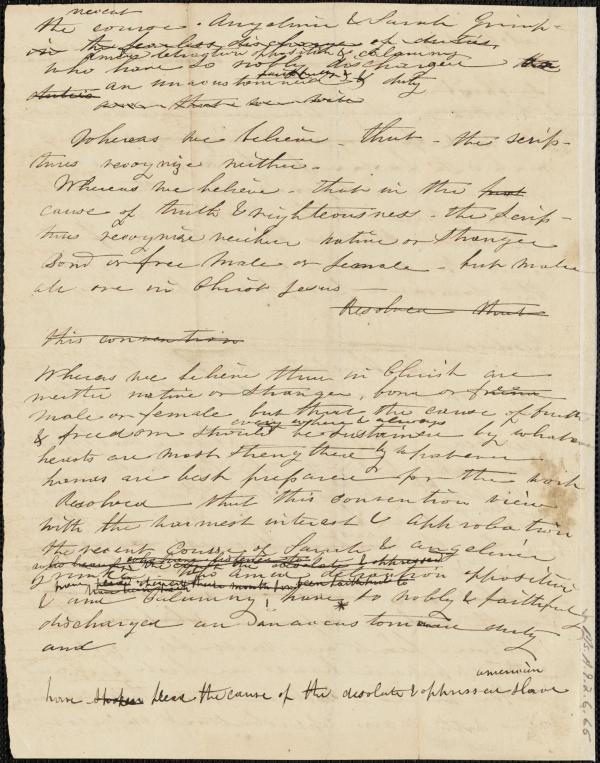 recent
the course. Angelina & Sarah Grimp-
in the fearless discharge of duties
amidst detraction opposition & calumny
who have so nobly discharged the
faithfully &
duties an unaccustomed duty
that we
Whereas we believe - that - the scrip-
tures recognize neither -
Whereas we believe - that in the
cause of truth & righteousness - the scrip-
tures recognize neither native or stranger
bond or free male or female - but make
all one in Christ Jesus -
Resolved that
this convention
Whereas we believe there in Christ are
neither native or stranger, bond or
male or female but that the cause of truth
every where & always
& freedom should be sustained by whatever
hearts are most strengthened by whatever
hands are best prepared for the work
Resolved that this convention view
with the warmest interest & approbation
the recent course of Sarah & Angelina
who the cry of the desolate & oppressed
Grimke who amid detraction opposition
have been faithful to
& and calumny, have * so nobly & faithfully
discharged an unaccustomed duty
and
american
have spoken plead the cause of the desolate & oppressed slave
Ms. A.9.2.6.65